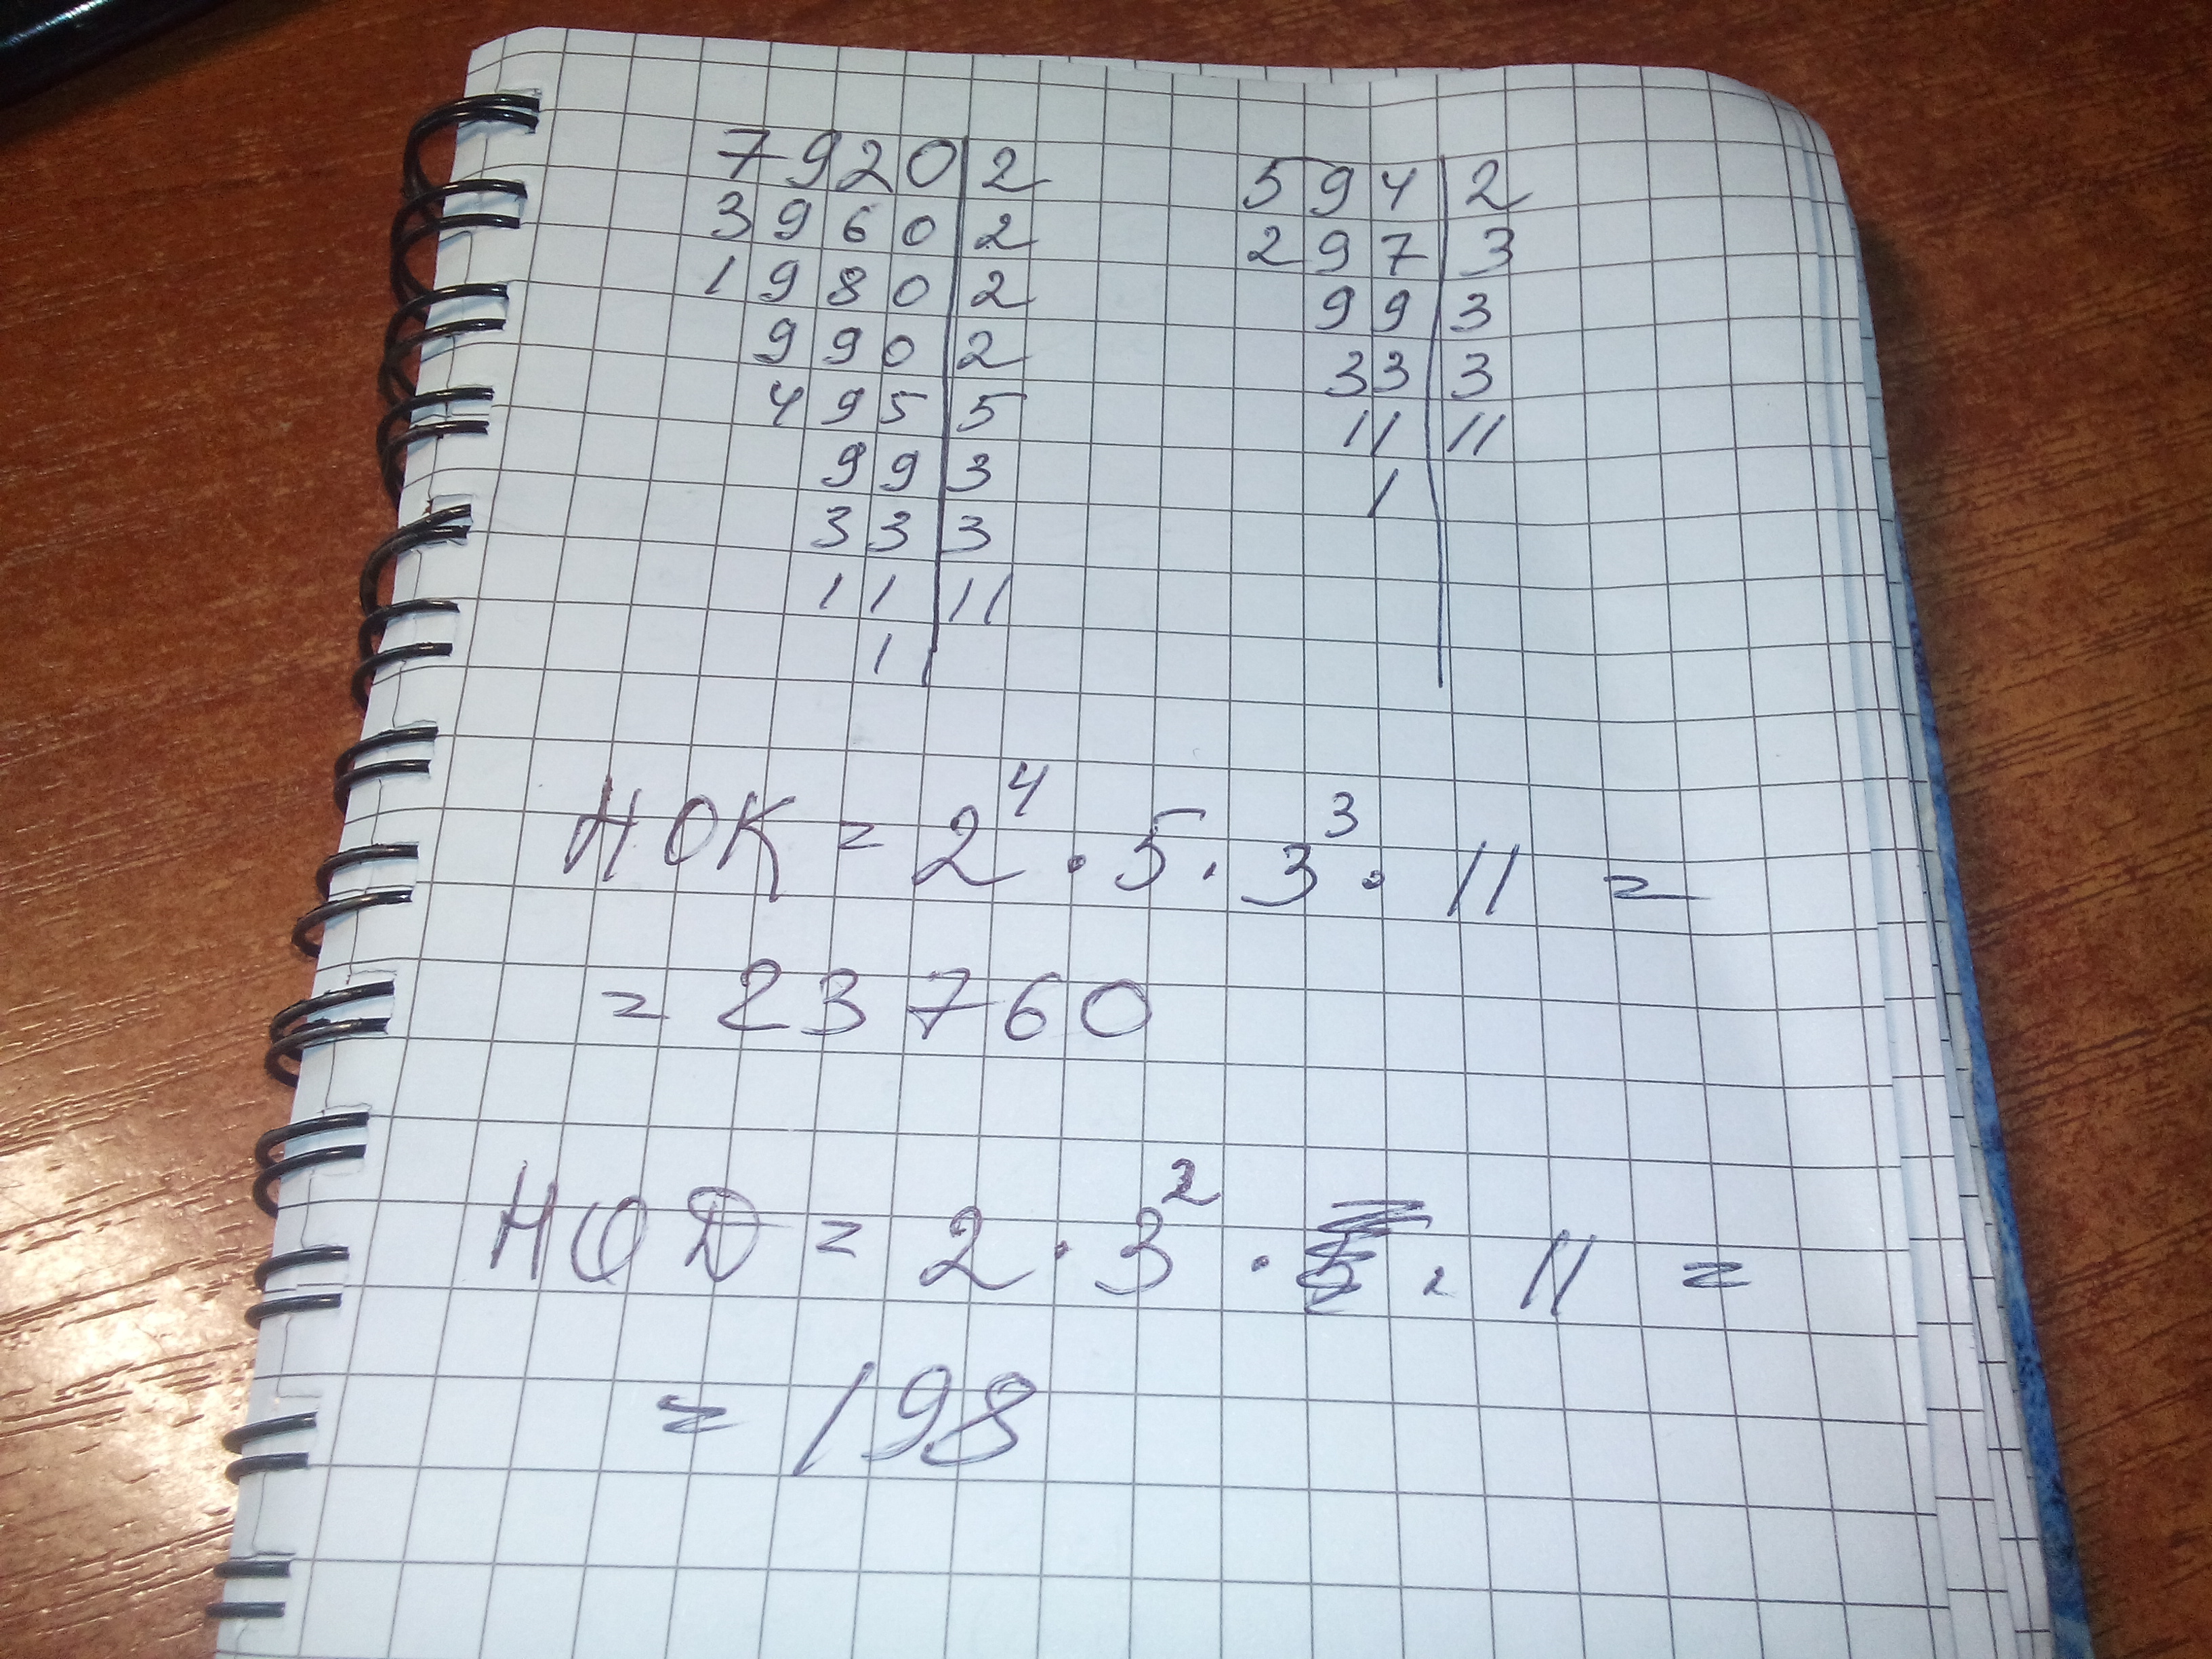 7920|2
3960|2
1980|2
990|2
495|5
99|3
33|3
11|11
1|
594|2
297|3
99|3
33|3
11|11
1|
НОК = 2⁴ · 5 · 3³ · 11 =
= 23760
НОД = 2 · 3² · · 11 =
= 198